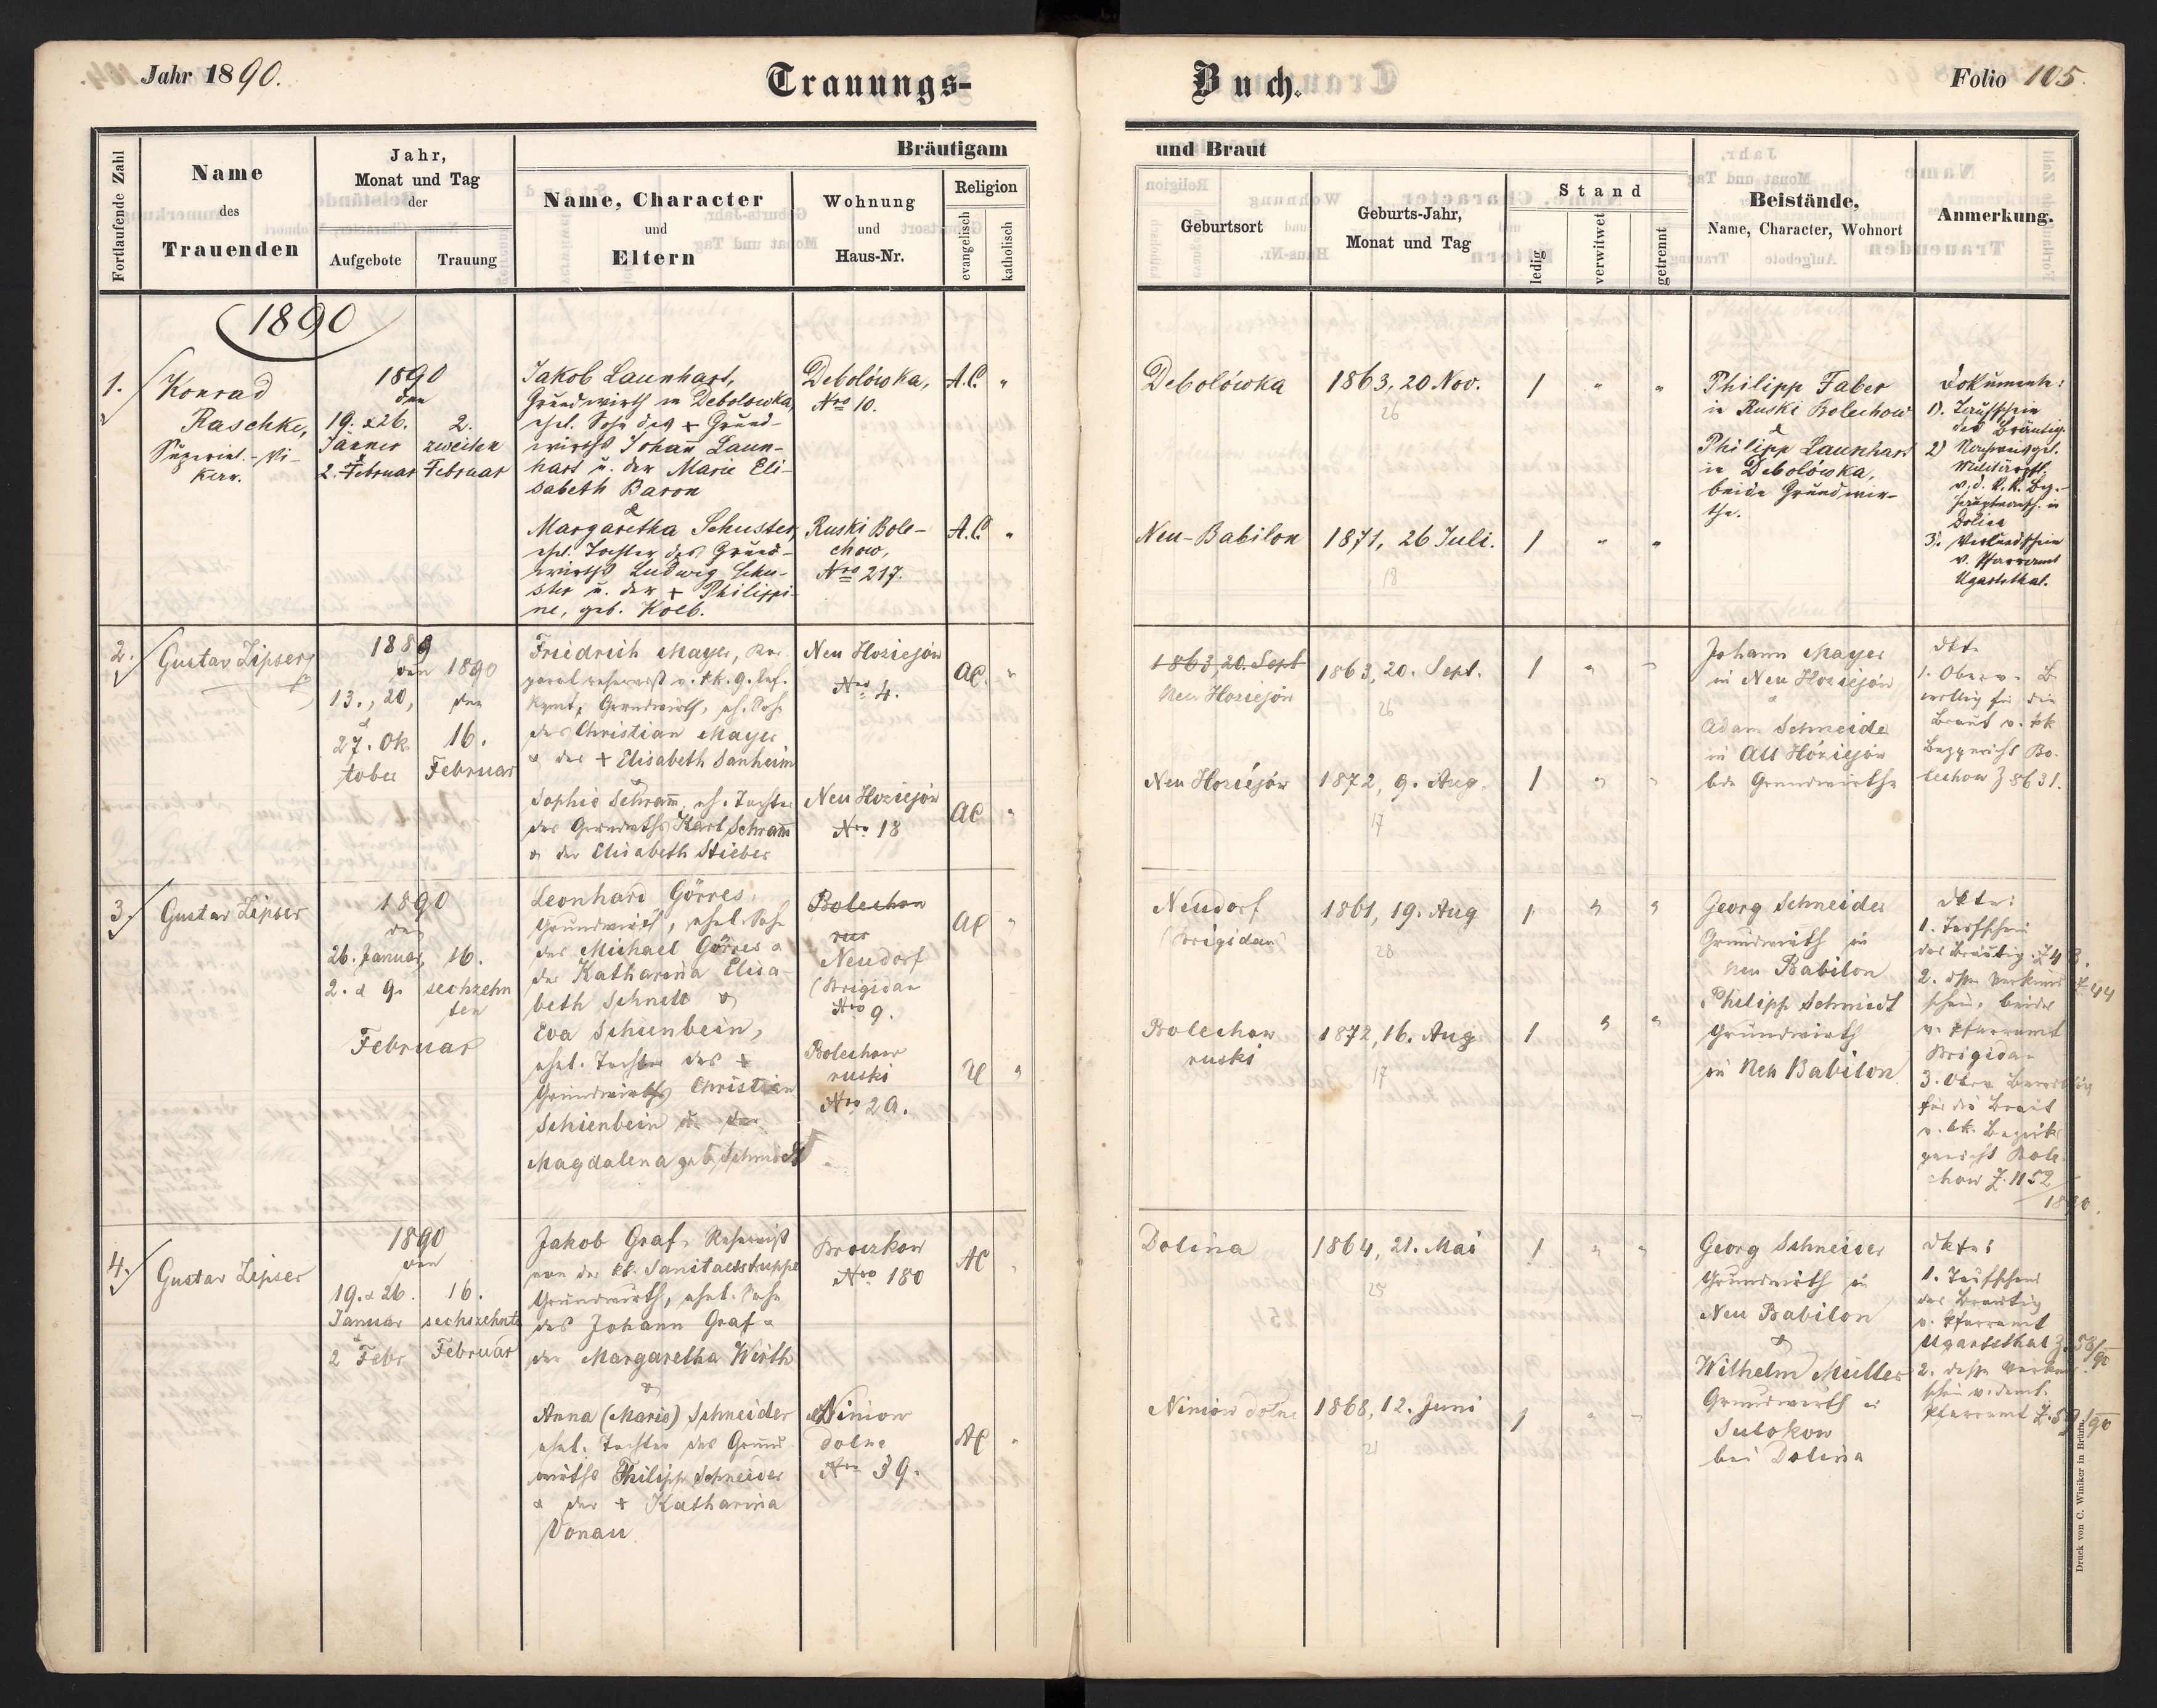 Jahr 1890.
Trauungs-
Buch.
Folio 105
Fortlaufende Zahl
Name
des
Trauenden
Jahr,
Monat und Tag
der
Aufgebote
Trauung
Bräutigam
Name, Character
und
Eltern
Wohnung
und
Haus-Nr.
Religion
evangelisch
katholisch
und Braut
Geburtsort
Geburts-Jahr,
Monat und Tag
Stand
ledig
verwitwet
getrennt
Beistände,
Name, Character, Wohnort
Anmerkung.
1890
1.
Konrad
Raschke,
Superint.-Vi-
kar.
1890
den
19. & 26.
Jänner
&
2. Februar
2.
zweiten
Februar
Jakob Launhart,
Grundwirth in Debolowka,
ehel. Sohn des + Grund-
wirths Johann Laun-
hart u. der Marie Eli-
sabeth Baron
&
Margaretha Schuster,
ehel. Tochter des Grund-
wirths Ludwig Schu-
ster u. der + Philippi-
ne, geb. Kolb.
Debolówka,
Nro 10.
Ruski Bole-
chow,
Nro 217.
A.C. "
A.C. "
Debolówka
1863, 20 Nov.
26
1 " "
Neu-Babilon
1871, 26 Juli.
18
1 " "
Philipp Faber
in Ruski Bolechow
&
Philipp Launhart
in Debolówka,
beide Grundwir-
the.
Dokumente:
1). Taufschein
des Bräutig.
2)
v. d. k. k. Bez.-
Hauptmansch. in
Dolina
3). Verkündschein
v. Pfarramt
Ugartsthal.
2.
Gustav Zipser
1889
den
13., 20,
&
27. Ok
tober
1890
den
16.
Februar
Friedrich Mayer,
v. kk. 9. Inf.
Rgmt, Grundwirth, eh. Sohn
des Christian Mayer
& der + Elisabeth Sanheim
&
Sophie Schramm, eh. Tochter
des Grundwirths Karl Schramm
& der Elisabeth Stieber
Neu Hoziejów
Nro 4.
Neu Hoziejów
Nro 18
AC. "
AC "
1863, 20. Sept
Neu Hoziejów
1863, 20. Sept.
26
1 " "
Neu Hoziejów
1872, 9. Aug.
17
1 " "
Johann Mayer
in Neu Hoziejów
&
Adam Schneider
in Alt Hoziejów
bde Grundwirthe
Dkte.
1. Oberv. B
willig für die
Braut v. kk
Bezgericht Bo-
lechow Z 8631.
3.
Gustav Zipser
1890
den
26. Januar,
2. & 9.
Februar
16.
sechzehn
ten
Leonhard Görres,
Grundwirth, ehel. Sohn
des Michael Görres &
der Katharina Elisa-
beth Schnell &
Eva Schienbein,
ehel. Tochter des +
Grundwirths Christian
Schienbein & der
Magdalena geb Schmidt
Bolechow
rus
Neudorf
(Brigidau
Nro 9.
Bolechow
ruski
Nro 29.
AC "
AC "
Neudorf
(Brigidau)
1861, 19. Aug
28
1 " "
Bolechow
ruski
1872, 16. Aug
17
1 " "
Georg Schneider
Grundwirth in
Neu Babilon
Philipp Schmidt
Grundwirth
in Neu Babilon
Dkte:
1. Taufschein
des Bräutig. Z 43.
2. dssn Verkünd Z 44
schein, beides
v. Pfarramt
Brigidau
3. Oberv. Bewillig
für die Braut
v. kk. Bezirks
gericht Bole
chow Z. 1152
1890.
4.
Gustav Zipser
1890
den
19. & 26.
Januar
&
2 Febr
16.
sechzehnte
Februar
Jakob Graf, Reservist
von der kk. Sanitaetstruppe
Grundwirth, ehel. Sohn
des Johann Graf &
der Margaretha Wirth
&
Anna (Marie) Schneider
ehel. Tochter des Grund
wirths Philipp Schneider
& der + Katharina
Donau.
Broczkow
Nro 180
Niniow
dolne
Nro 39.
AC "
AC "
Dolina
1864, 21. Mai
25
1 " "
Niniow dolne
1868, 12. Juni
21
1 " "
Georg Schneider
Grundwirth in
Neu Babilon
&
Wilhelm Müller
Grundwirth in
Sulokow
bei Dolina
Dkte:
1. Taufschein
des Bräutig
v. Pfarramt
Ugartsthal Z. 58/90
2. dessen Verkün
schein v. demf.
Pfarramt Z. 59/90
Druck von C. Winiker in Brünn.